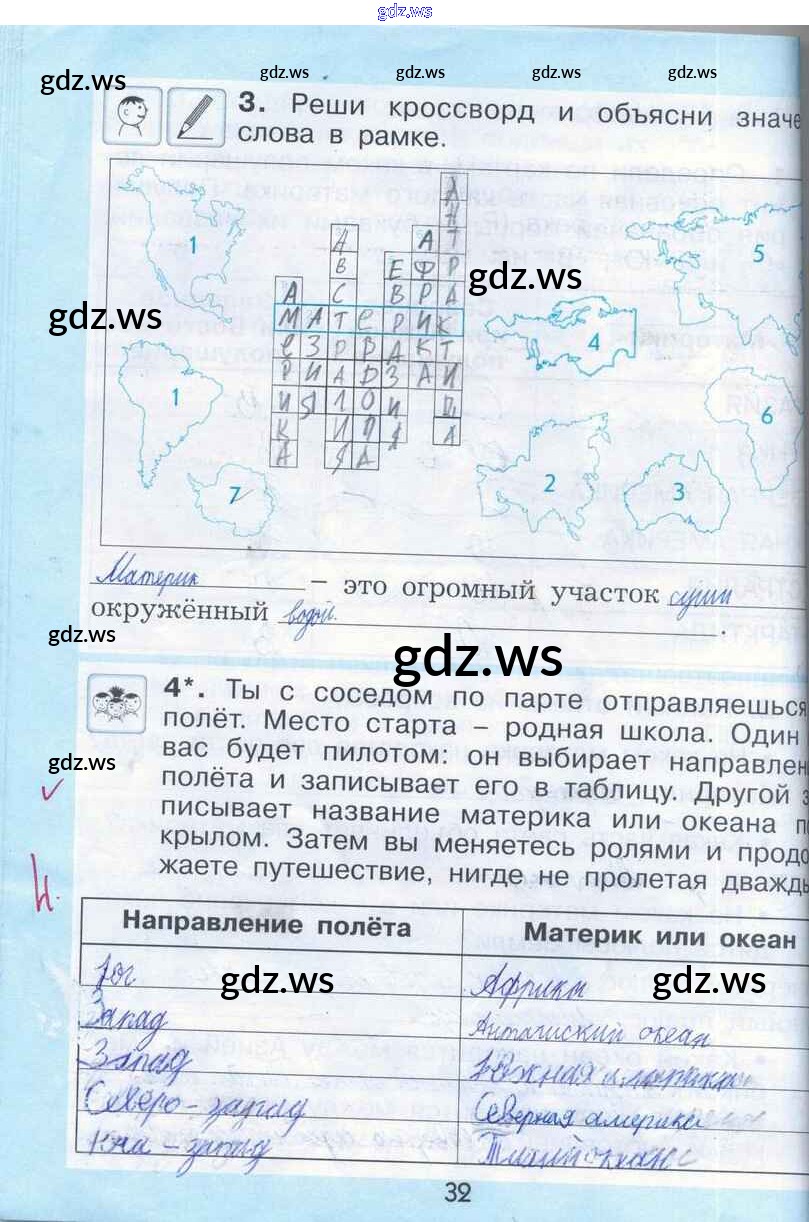 gdz.ws
gdz.ws
gdz.ws gdz.ws gdz.ws gdz.ws
3. Реши кроссворд и объясни значе
слова в рамке.
А
Н
А А Т
В Е Ф Р
gdz.ws
А С В Р А
gdz.ws
М А Т Е Р И К
Е З Р В А К Т
Р И А Д З А И
И Я Л О И Д
К И П Я А
А Я А
1
5
4
1
6
7
2
3
Материк – это огромный участок суши
окружённый водой.
gdz.ws
gdz.ws
4*. Ты с соседом по парте отправляешься
полёт. Место старта – родная школа. Один
вас будет пилотом: он выбирает направлен
gdz.ws
полёта и записывает его в таблицу. Другой з
писывает название материка или океана п
крылом. Затем вы меняетесь ролями и продо
жаете путешествие, нигде не пролетая дважды
Направление полёта Материк или океан
Юг Африка
gdz.ws gdz.ws
Запад океан
Запад Южная
Северо-запад Северная америка
- запад
32